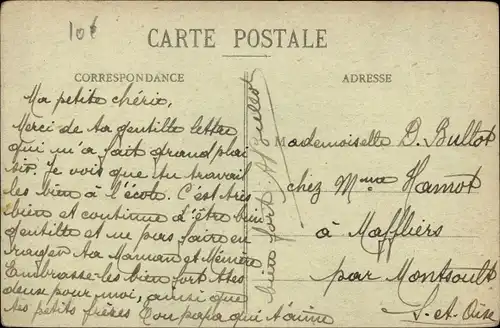 10f
CARTE POSTALE
CORRESPONDANCE
ADRESSE
Ma petite chérie,
Merci de ta gentille lettre
qui m'a fait grand plai
sir. Je vois que tu travail
les bien à l'école. C'est très
bien et continue d'être bien
gentille et ne pas faire en
rager ta Maman et Mémère
Embrasse-les bien fort toutes
deux pour moi, ainsi que
tes petits frères Ton papa qui t'aime
bien fort. A. Bullot
Mademoiselle D. Bullot
chez Mme Hamot
à Maffliers
par Montsoult
S.-et-Oise